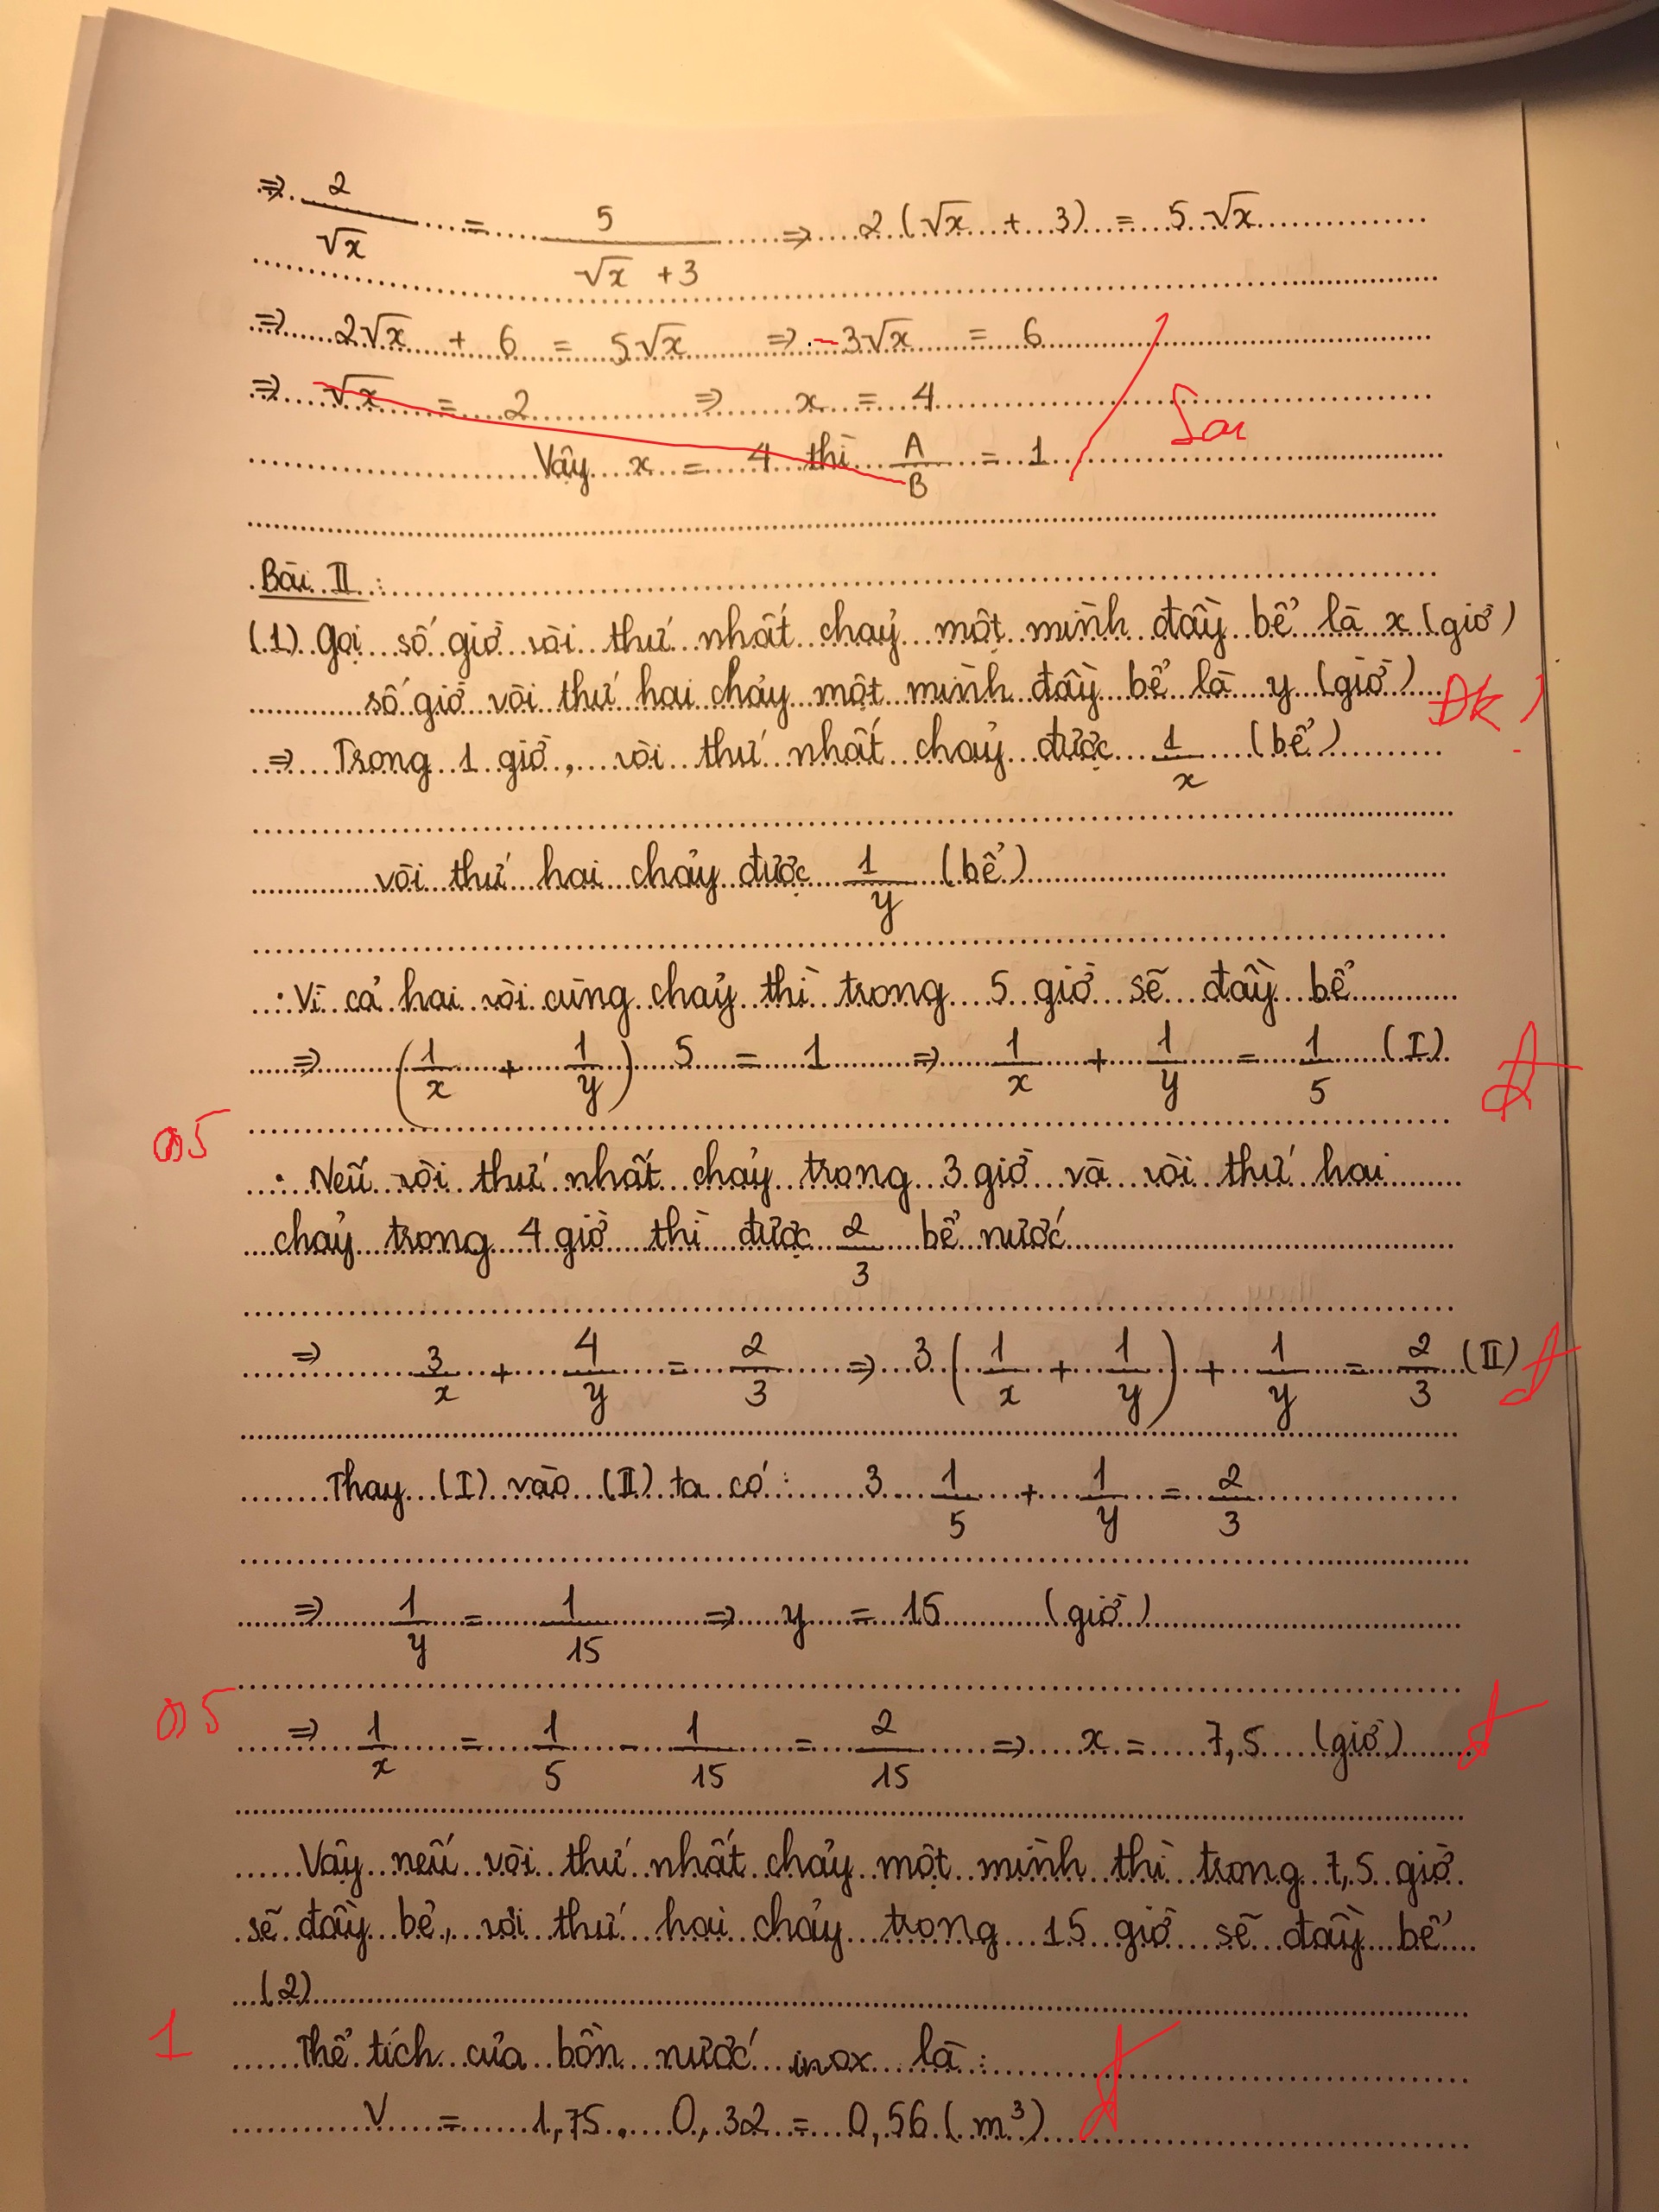 ⇒ 2/√x = 5/(√x + 3) ⇒ 2(√x + 3) = 5√x
⇒ 2√x + 6 = 5√x ⇒ -3√x = 6
⇒ √x = 2 ⇒ x = 4
Sai
Vậy x = 4 thì A/B = 1
Bài II:
(1) Gọi số giờ vòi thứ nhất chảy một mình đầy bể là x (giờ)
số giờ vòi thứ hai chảy một mình đầy bể là y (giờ)
ĐK?
⇒ Trong 1 giờ, vòi thứ nhất chảy được 1/x (bể)
vòi thứ hai chảy được 1/y (bể)
• Vì cả hai vòi cùng chảy thì trong 5 giờ sẽ đầy bể
⇒ (1/x + 1/y) 5 = 1 ⇒ 1/x + 1/y = 1/5 (I)
0,5
• Nếu vòi thứ nhất chảy trong 3 giờ và vòi thứ hai
chảy trong 4 giờ thì được 2/3 bể nước
⇒ 3/x + 4/y = 2/3 ⇒ 3(1/x + 1/y) + 1/y = 2/3 (II)
Thay (I) vào (II) ta có: 3 1/5 + 1/y = 2/3
⇒ 1/y = 1/15 ⇒ y = 15 (giờ)
0,5
⇒ 1/x = 1/5 - 1/15 = 2/15 ⇒ x = 7,5 (giờ)
Vậy nếu vòi thứ nhất chảy một mình thì trong 7,5 giờ
sẽ đầy bể, vòi thứ hai chảy trong 15 giờ sẽ đầy bể
(2)
1
Thể tích của bồn nước inox là:
V = 1,75 . 0,32 = 0,56 (m³)